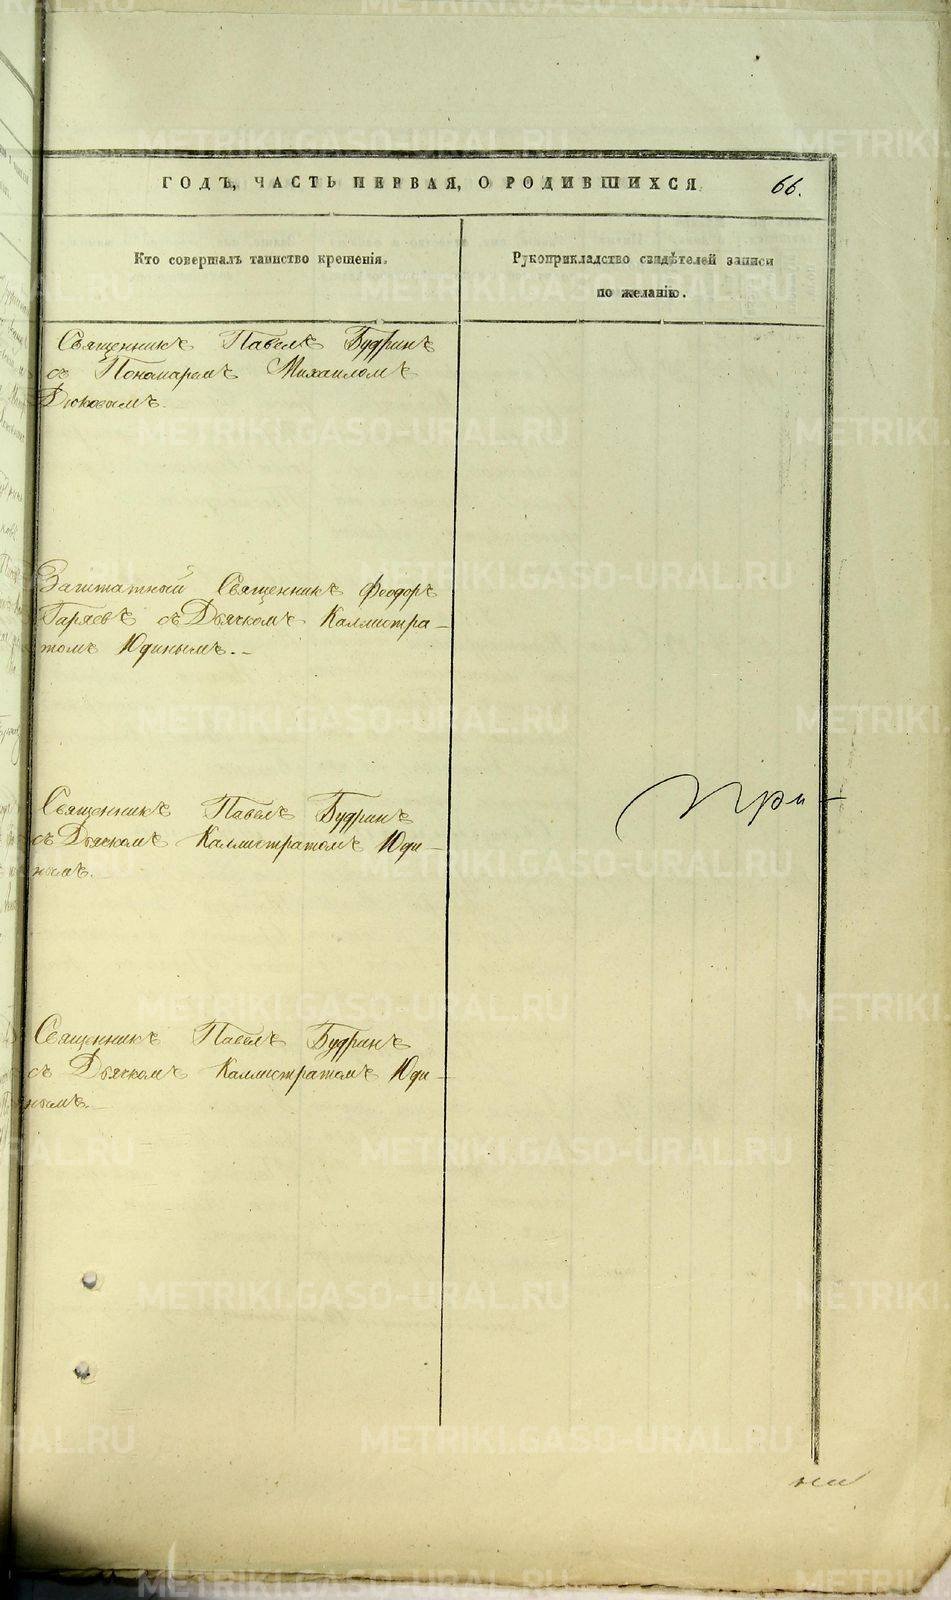 ГОДЪ, ЧАСТЬ ПЕРВАЯ, О РОДИВШИХСЯ 66.
Кто совершалъ таинство крещенія.
Рукоприкладство свидѣтелей записи
по желанію.
Священникъ Павелъ Будринъ
съ Пономаремъ Михаиломъ
Дюковымъ.
Заштатный Священникъ Феодоръ
Гаряевъ съ Дьячкомъ Каллистра-
томъ Юдинымъ.-
Священникъ Павелъ Будринъ
съ Дьячкомъ Каллистратомъ Юди-
нымъ.
При-
Священникъ Павелъ Будринъ
съ Дьячкомъ Каллистратомъ Юди-
нымъ.-
METRIKI.GASO-URAL.RU